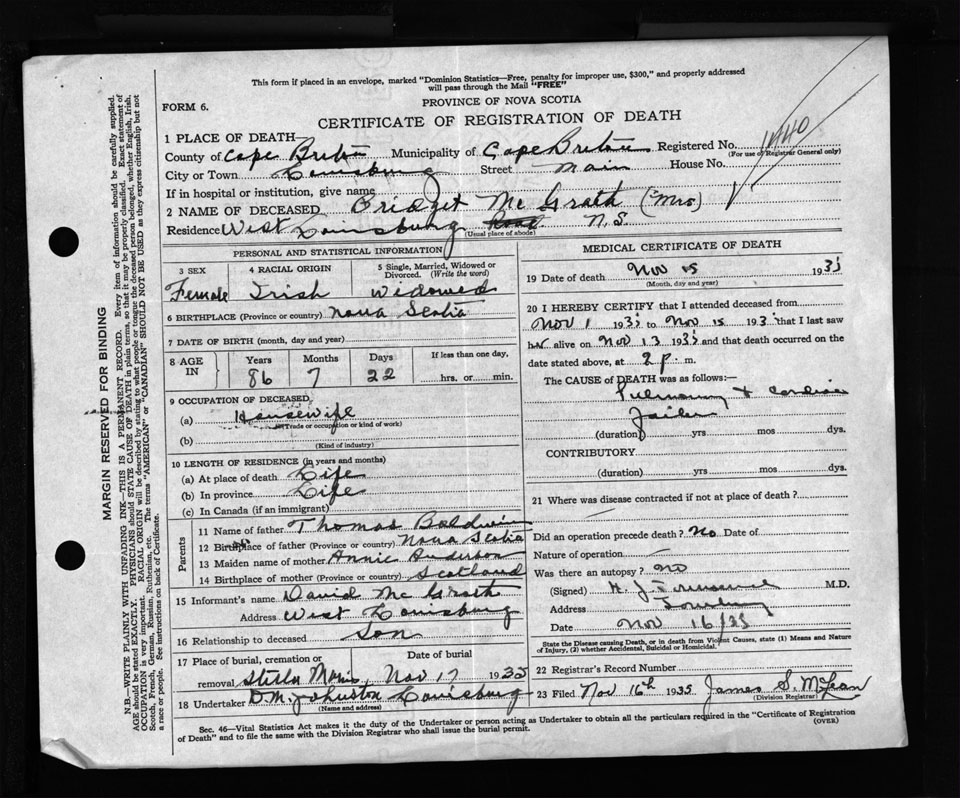 This form if placed in an envelope, marked "Dominion Statistics—Free, penalty for improper use, $300," and properly addressed
will pass through the Mail "FREE"
PROVINCE OF NOVA SCOTIA
FORM 6.
CERTIFICATE OF REGISTRATION OF DEATH
1 PLACE OF DEATH
County of Cape Breton Municipality of Cape Breton Registered No. 1440
(For use of Registrar General only)
City or Town Louisburg Street Main House No.
If in hospital or institution, give name
2 NAME OF DECEASED Bridget Mc Grath (Mrs)
Residence West Louisburg Road N.S.
(Usual place of abode)
PERSONAL AND STATISTICAL INFORMATION
3 SEX 4 RACIAL ORIGIN 5 Single, Married, Widowed or Divorced. (Write the word)
Female Irish Widowed
6 BIRTHPLACE (Province or country) Nova Scotia
7 DATE OF BIRTH (month, day and year)
8 AGE IN Years Months Days If less than one day,
86 7 22 hrs. or min.
9 OCCUPATION OF DECEASED
(a) Housewife
(Trade or occupation or kind of work)
(b)
(Kind of industry)
10 LENGTH OF RESIDENCE (in years and months)
(a) At place of death Life
(b) In province Life
(c) In Canada (if an immigrant)
Parents
11 Name of father Thomas Baldwin
12 Birthplace of father (Province or country) Nova Scotia
13 Maiden name of mother Annie Anderson
14 Birthplace of mother (Province or country) Scotland
15 Informant's name David Mc Grath
Address West Louisburg
16 Relationship to deceased Son
17 Place of burial, cremation or removal Date of burial
Stella Maris, Nov 17 1935
18 Undertaker D.M. Johnston Louisburg
(Name and address)
MEDICAL CERTIFICATE OF DEATH
19 Date of death Nov 15 1935
(Month, day and year)
20 I HEREBY CERTIFY that I attended deceased from
Nov 1 1935 to Nov 15 1935 that I last saw
her alive on Nov 13 1935 and that death occurred on the
date stated above, at 2 p. m.
The CAUSE of DEATH was as follows:—
Pulmonary + Cardiac
Failure
(duration) yrs mos dys.
CONTRIBUTORY
(duration) yrs mos dys.
21 Where was disease contracted if not at place of death?
Did an operation precede death? No Date of
Nature of operation
Was there an autopsy? no
(Signed) M.D.
Address
Date Nov 16/35
State the Disease causing Death, or in death from Violent Causes, state (1) Means and Nature
of Injury, (2) whether Accidental, Suicidal or Homicidal.
22 Registrar's Record Number
23 Filed Nov 16th 1935 James S. McLean
(Division Registrar)
Sec. 46—Vital Statistics Act makes it the duty of the Undertaker or person acting as Undertaker to obtain all the particulars required in the "Certificate of Registration
of Death" and to file the same with the Division Registrar who shall issue the burial permit.
(OVER)
MARGIN RESERVED FOR BINDING
N.B.—WRITE PLAINLY WITH UNFADING INK—THIS IS A PERMANENT RECORD. Every item of information should be carefully supplied.
AGE should be stated EXACTLY. PHYSICIANS should STATE CAUSE OF DEATH in plain terms, so that it may be properly classified. Exact statement of
OCCUPATION is very important. RACIAL ORIGIN will be described by stating to what people or tongue the deceased person belonged, whether English, Irish,
Scotch, French, German, Russian, Ruthenian, etc. The terms "AMERICAN" or "CANADIAN" SHOULD NOT BE USED as they express citizenship but not
a race or people. See instructions on back of Certificate.